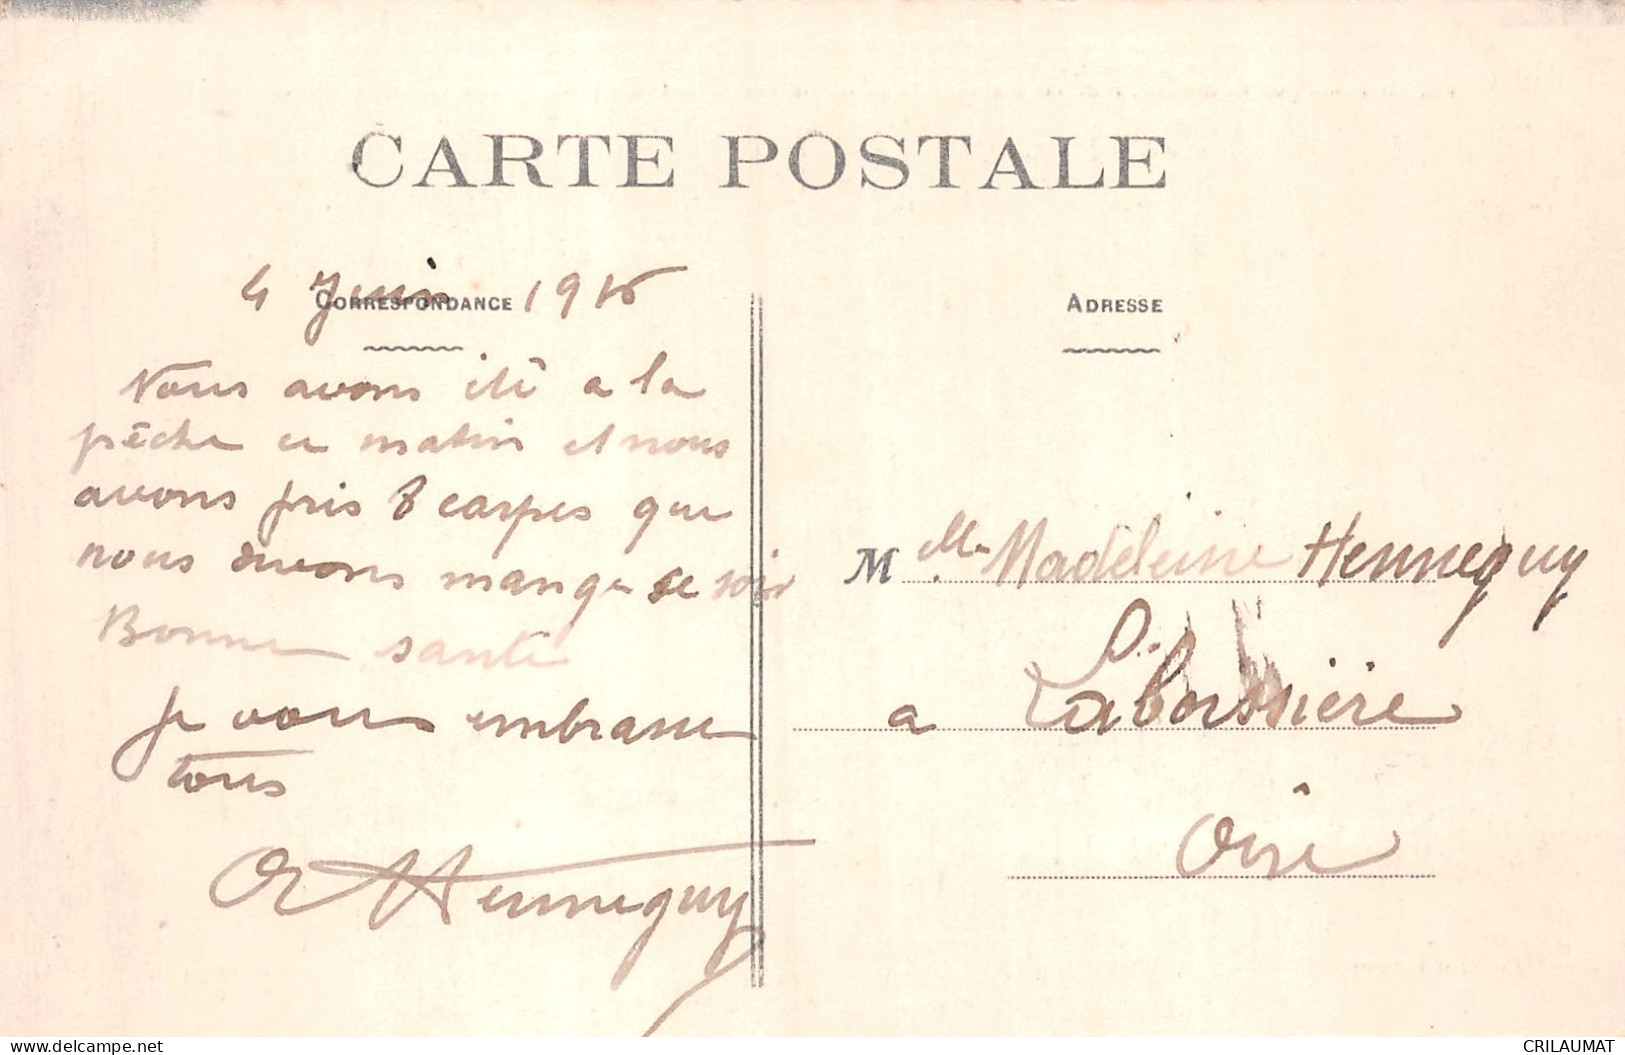 CARTE POSTALE
4 Juin 1916
CORRESPONDANCE
Nous avons été a la
pêche ce matin et nous
avons pris 8 carpes que
nous avons mangé ce soir
Bonne santé
Je vous embrasse
tous
Hennequy
ADRESSE
M elle Madeleine Hennequy
a Laboissière
Oise
www.delcampe.net
CRILAUMAT